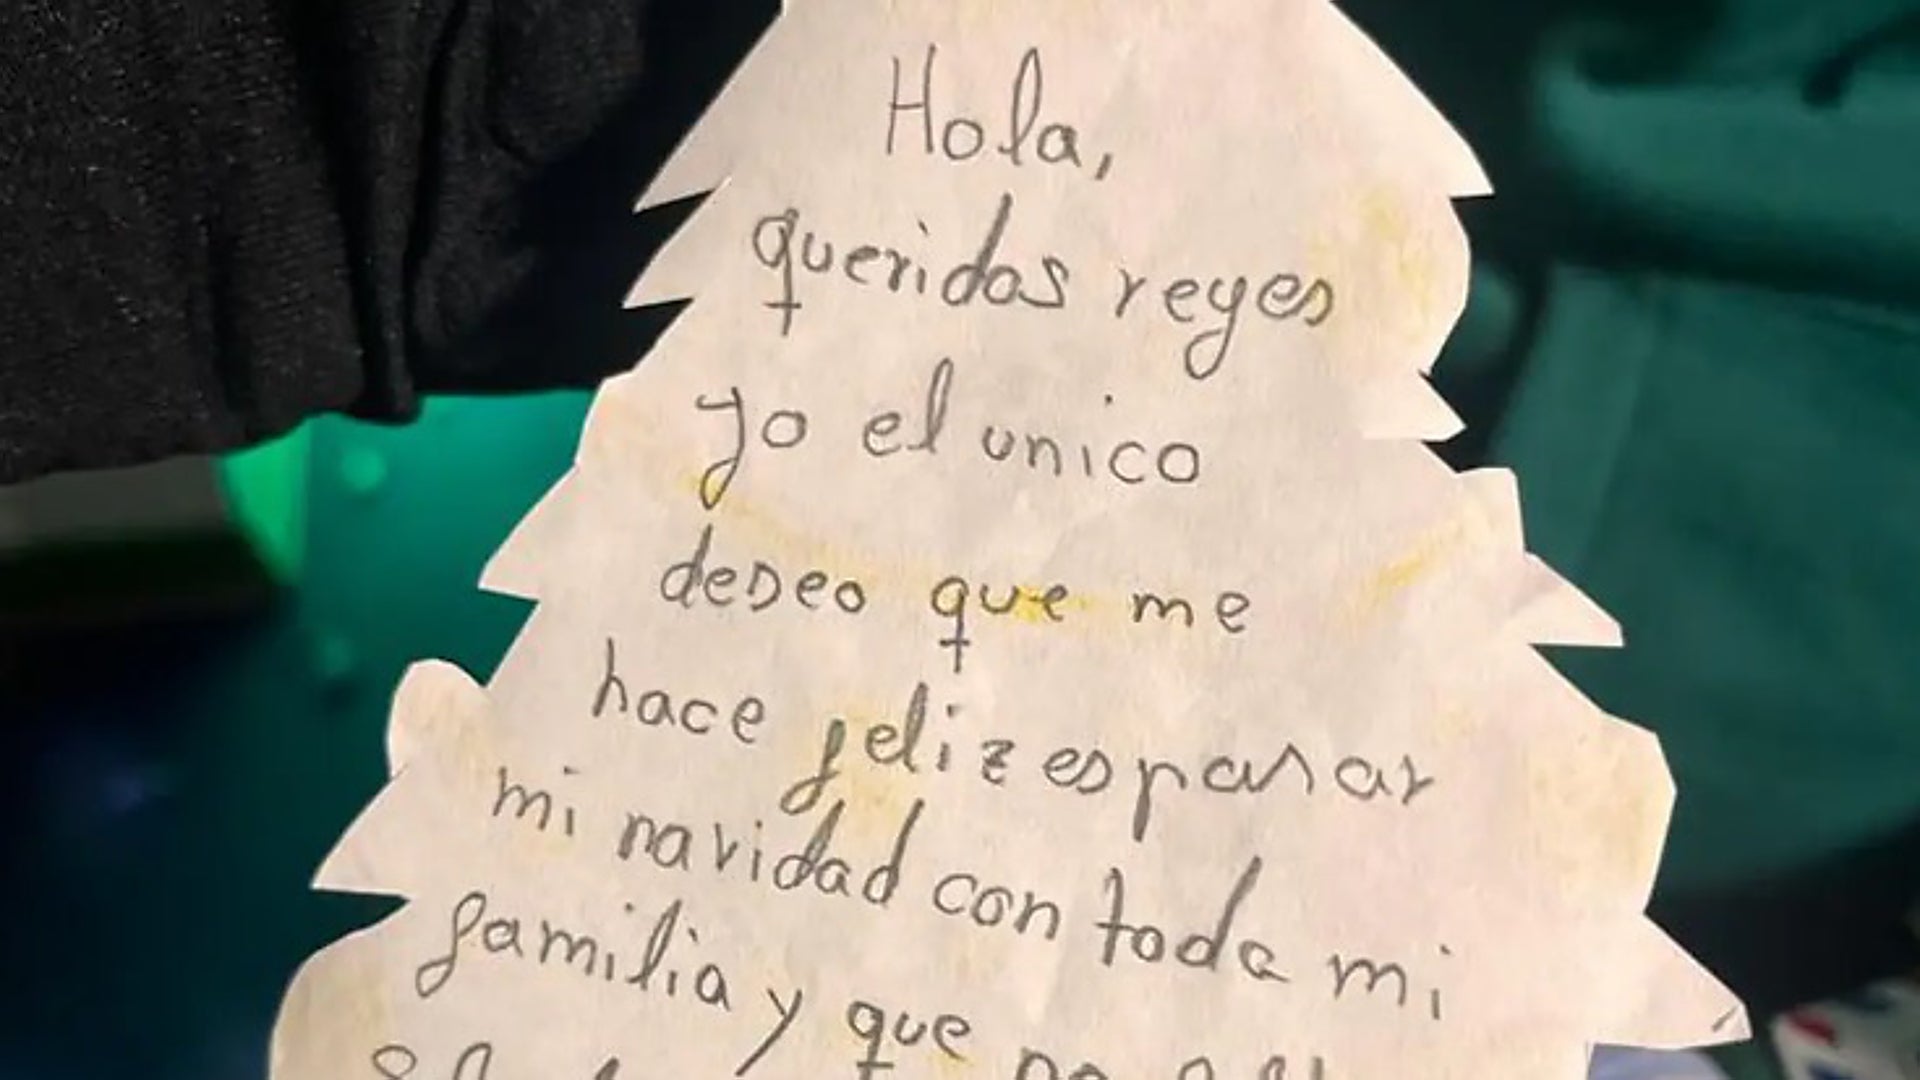 Hola,
queridos reyes
yo el unico
deseo que me
hace feliz es pasar
mi navidad con toda mi
familia y que